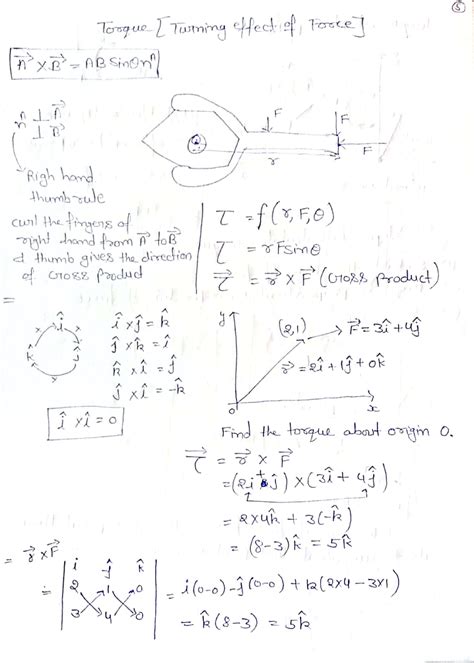 5
Torque [Turning effect of Force]
A⃗ × B⃗ = AB Sinθ n̂
n̂ ⊥ A⃗
n̂ ⊥ B⃗
F
F
F
r
Righ hand
thumb rule
curl the fingers of
right hand from A⃗ to B⃗
& thumb gives the direction
of cross product
τ = f(r, F, θ)
τ = rFsinθ
τ⃗ = r⃗ × F⃗ (cross product)
=
î
k̂
ĵ
× × ×
î × ĵ = k̂
ĵ × k̂ = î
k̂ × î = ĵ
ĵ × î = -k̂
î × î = 0
y
(2,1)
F⃗ = 3î + 4ĵ
r⃗ = 2î + 1ĵ + 0k̂
0
x
Find the torque about origin O.
τ⃗ = r⃗ × F⃗
= (2î + ĵ) × (3î + 4ĵ)
= 2×4k̂ + 3(-k̂)
= (8-3)k̂ = 5k̂
= r⃗ × F⃗
i ĵ k̂
= 2 1 0 = i(0-0) - ĵ(0-0) + k(2×4 - 3×1)
3 4 0 = k̂(8-3) = 5k̂